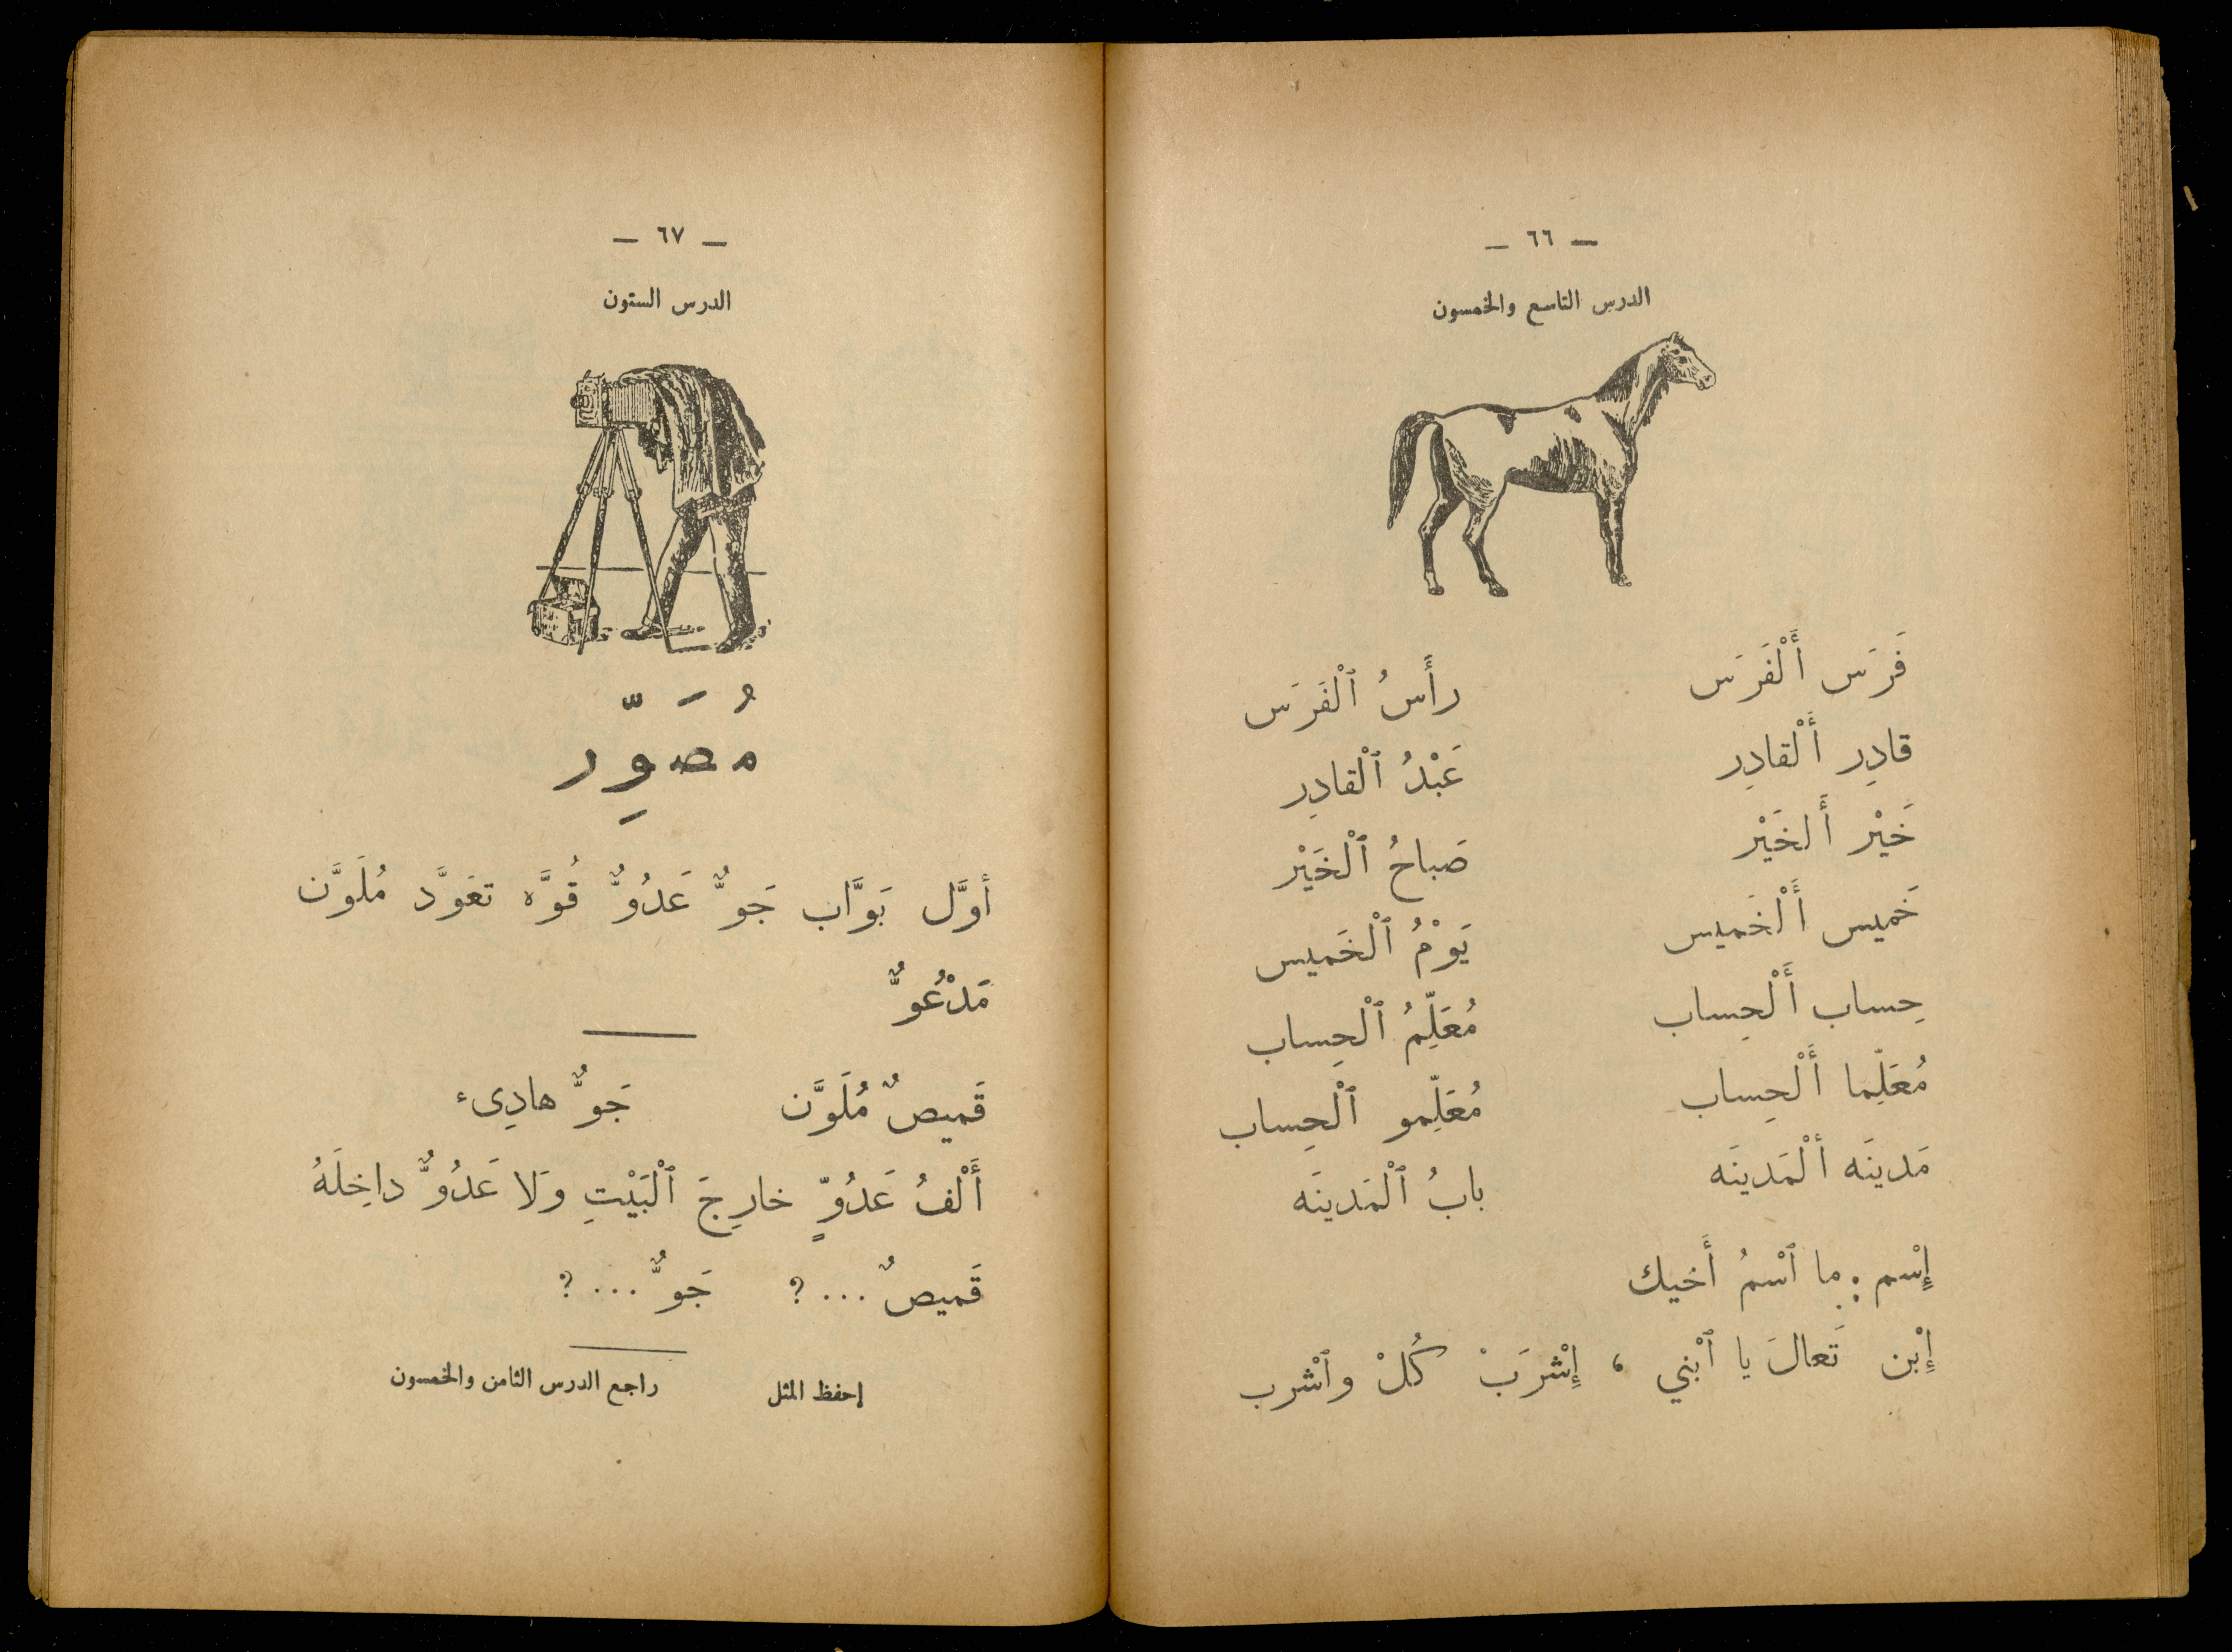 — ٦٦ —
الدرس التاسع والخمسون
فَرَس أَلْفَرَس رأَسُ ٱلْفَرَس
قادِر أَلْقادِر عَبْدُ ٱلْقادِر
خَيْر أَلخَيْر صَباحُ ٱلْخَيْر
خَميس أَلْخَميس يَوْمُ ٱلْخَميس
حِساب أَلْحِساب مُعَلِّمُ ٱلْحِساب
مُعَلِّما أَلْحِساب مُعَلِّمو ٱلْحِساب
مَدينَه ألْمَدينَه بابُ ٱلْمَدينَه
إِسْم : ما ٱسْمُ أَخيك
إِبْن تَعالَ يا ٱبْني ، إِشْرَبْ كُلْ وٱشْرب
— ٦٧ —
الدرس الستون
مُصَوِّر
أوَّل بَوَّاب جَوٌّ عَدُوٌّ قُوَّه تعَوَّد مُلَوَّن
مَدْعُوٌّ
قَميصٌ مُلَوَّن جَوٌّ هادِىء
أَلْفُ عَدُوٍّ خارِجَ ٱلْبَيْتِ وَلا عَدُوٌّ داخِلَهُ
قَميصٌ ... ؟ جَوٌّ ... ؟
إحفظ المثل راجع الدرس الثامن والخمسون